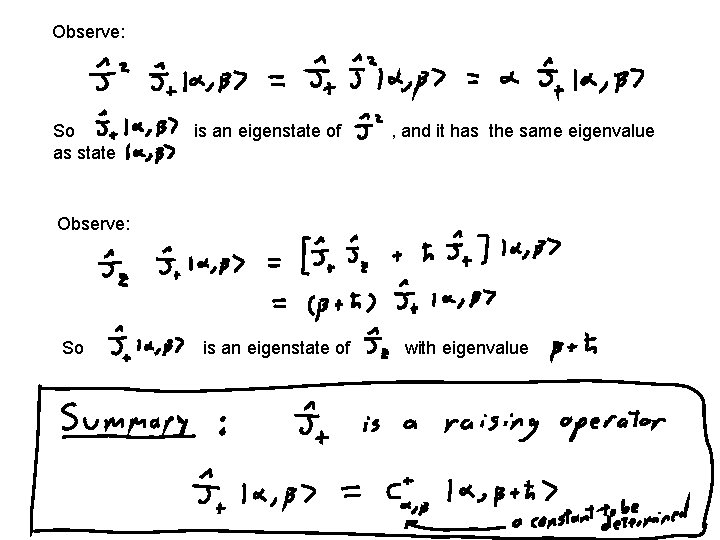 Observe:
Ĵ² Ĵ₊|α,β> = Ĵ₊ Ĵ²|α,β> = α Ĵ₊|α,β>
So Ĵ₊|α,β> is an eigenstate of Ĵ² , and it has the same eigenvalue
as state |α,β>
Observe:
Ĵz Ĵ₊|α,β> = [Ĵ₊ Ĵz + ħ Ĵ₊]|α,β>
= (β+ħ) Ĵ₊|α,β>
So Ĵ₊|α,β> is an eigenstate of Ĵz with eigenvalue β+ħ
Summary : Ĵ₊ is a raising operator
Ĵ₊|α,β> = C⁺α,β |α,β+ħ>
a constant to be
determined